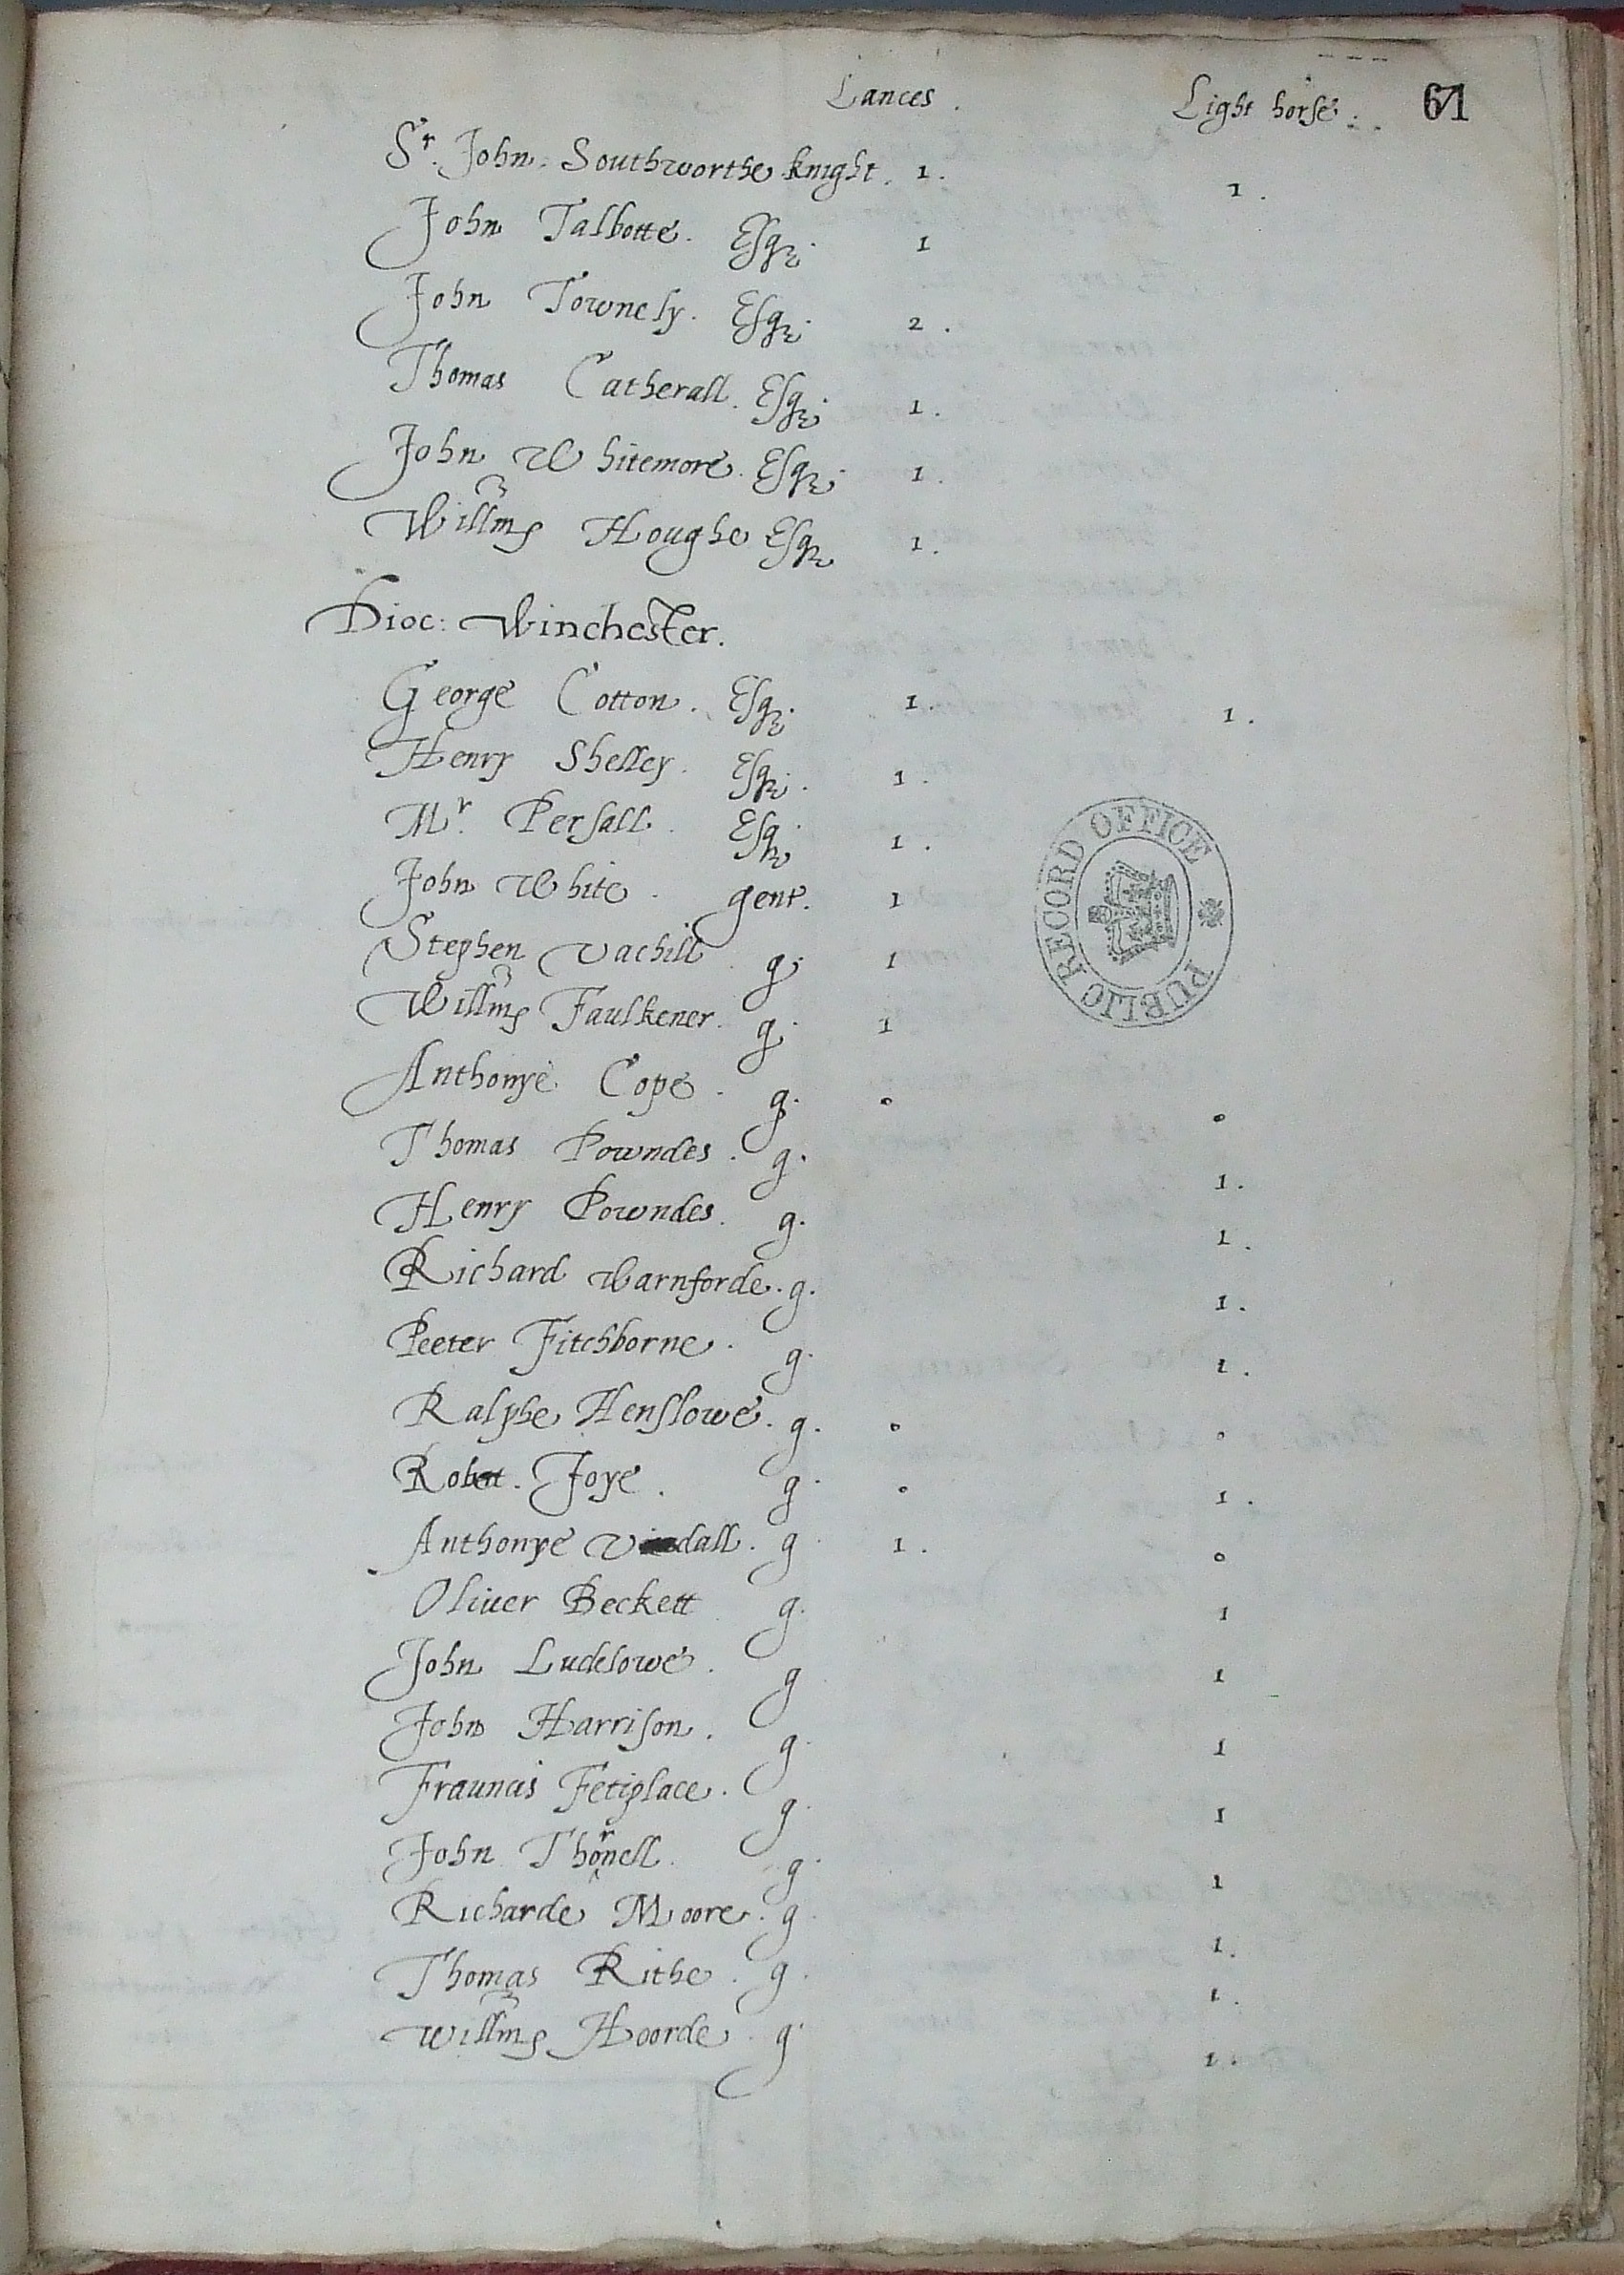 Lances . Light horse . 61
Sr. John Southworthe knight . 1 . 1 .
John Talbotte . Esqr . 1
John Townely . Esqr . 2 .
Thomas Catherall . Esqr . 1 .
John Whitemore . Esqr . 1 .
Willms Houghe Esqr 1 .
Dioc: Winchester .
George Cotton . Esqr . 1 . 1 .
Henry Shelley . Esqr . 1 .
Mr. Persall . Esqr 1 .
John White . gent . 1
Stephen Vachill . g . 1
Willms Faulkener . g . 1
Anthonye Cope . g . 0 0
Thomas Powndes . g . 1 .
Henry Powndes . g . 1 .
Richard Warnforde . g . 1 .
Peeter Fitchborne . g . 1 .
Ralphe Henslowe . g . 0 0
Robert . Joye . g . 0 1 .
Anthonye dall . g 1 . 0
Oliuer Beckett g . 1
John Ludelowe . g 1
John Harrison . g . 1
Frauncis Fetiplace . g . 1
John Thornell . g . 1
Richarde Moore . g 1 .
Thomas Rithe . g . 1 .
Willms Hoorde . g . 1 .
PUBLIC RECORD OFFICE